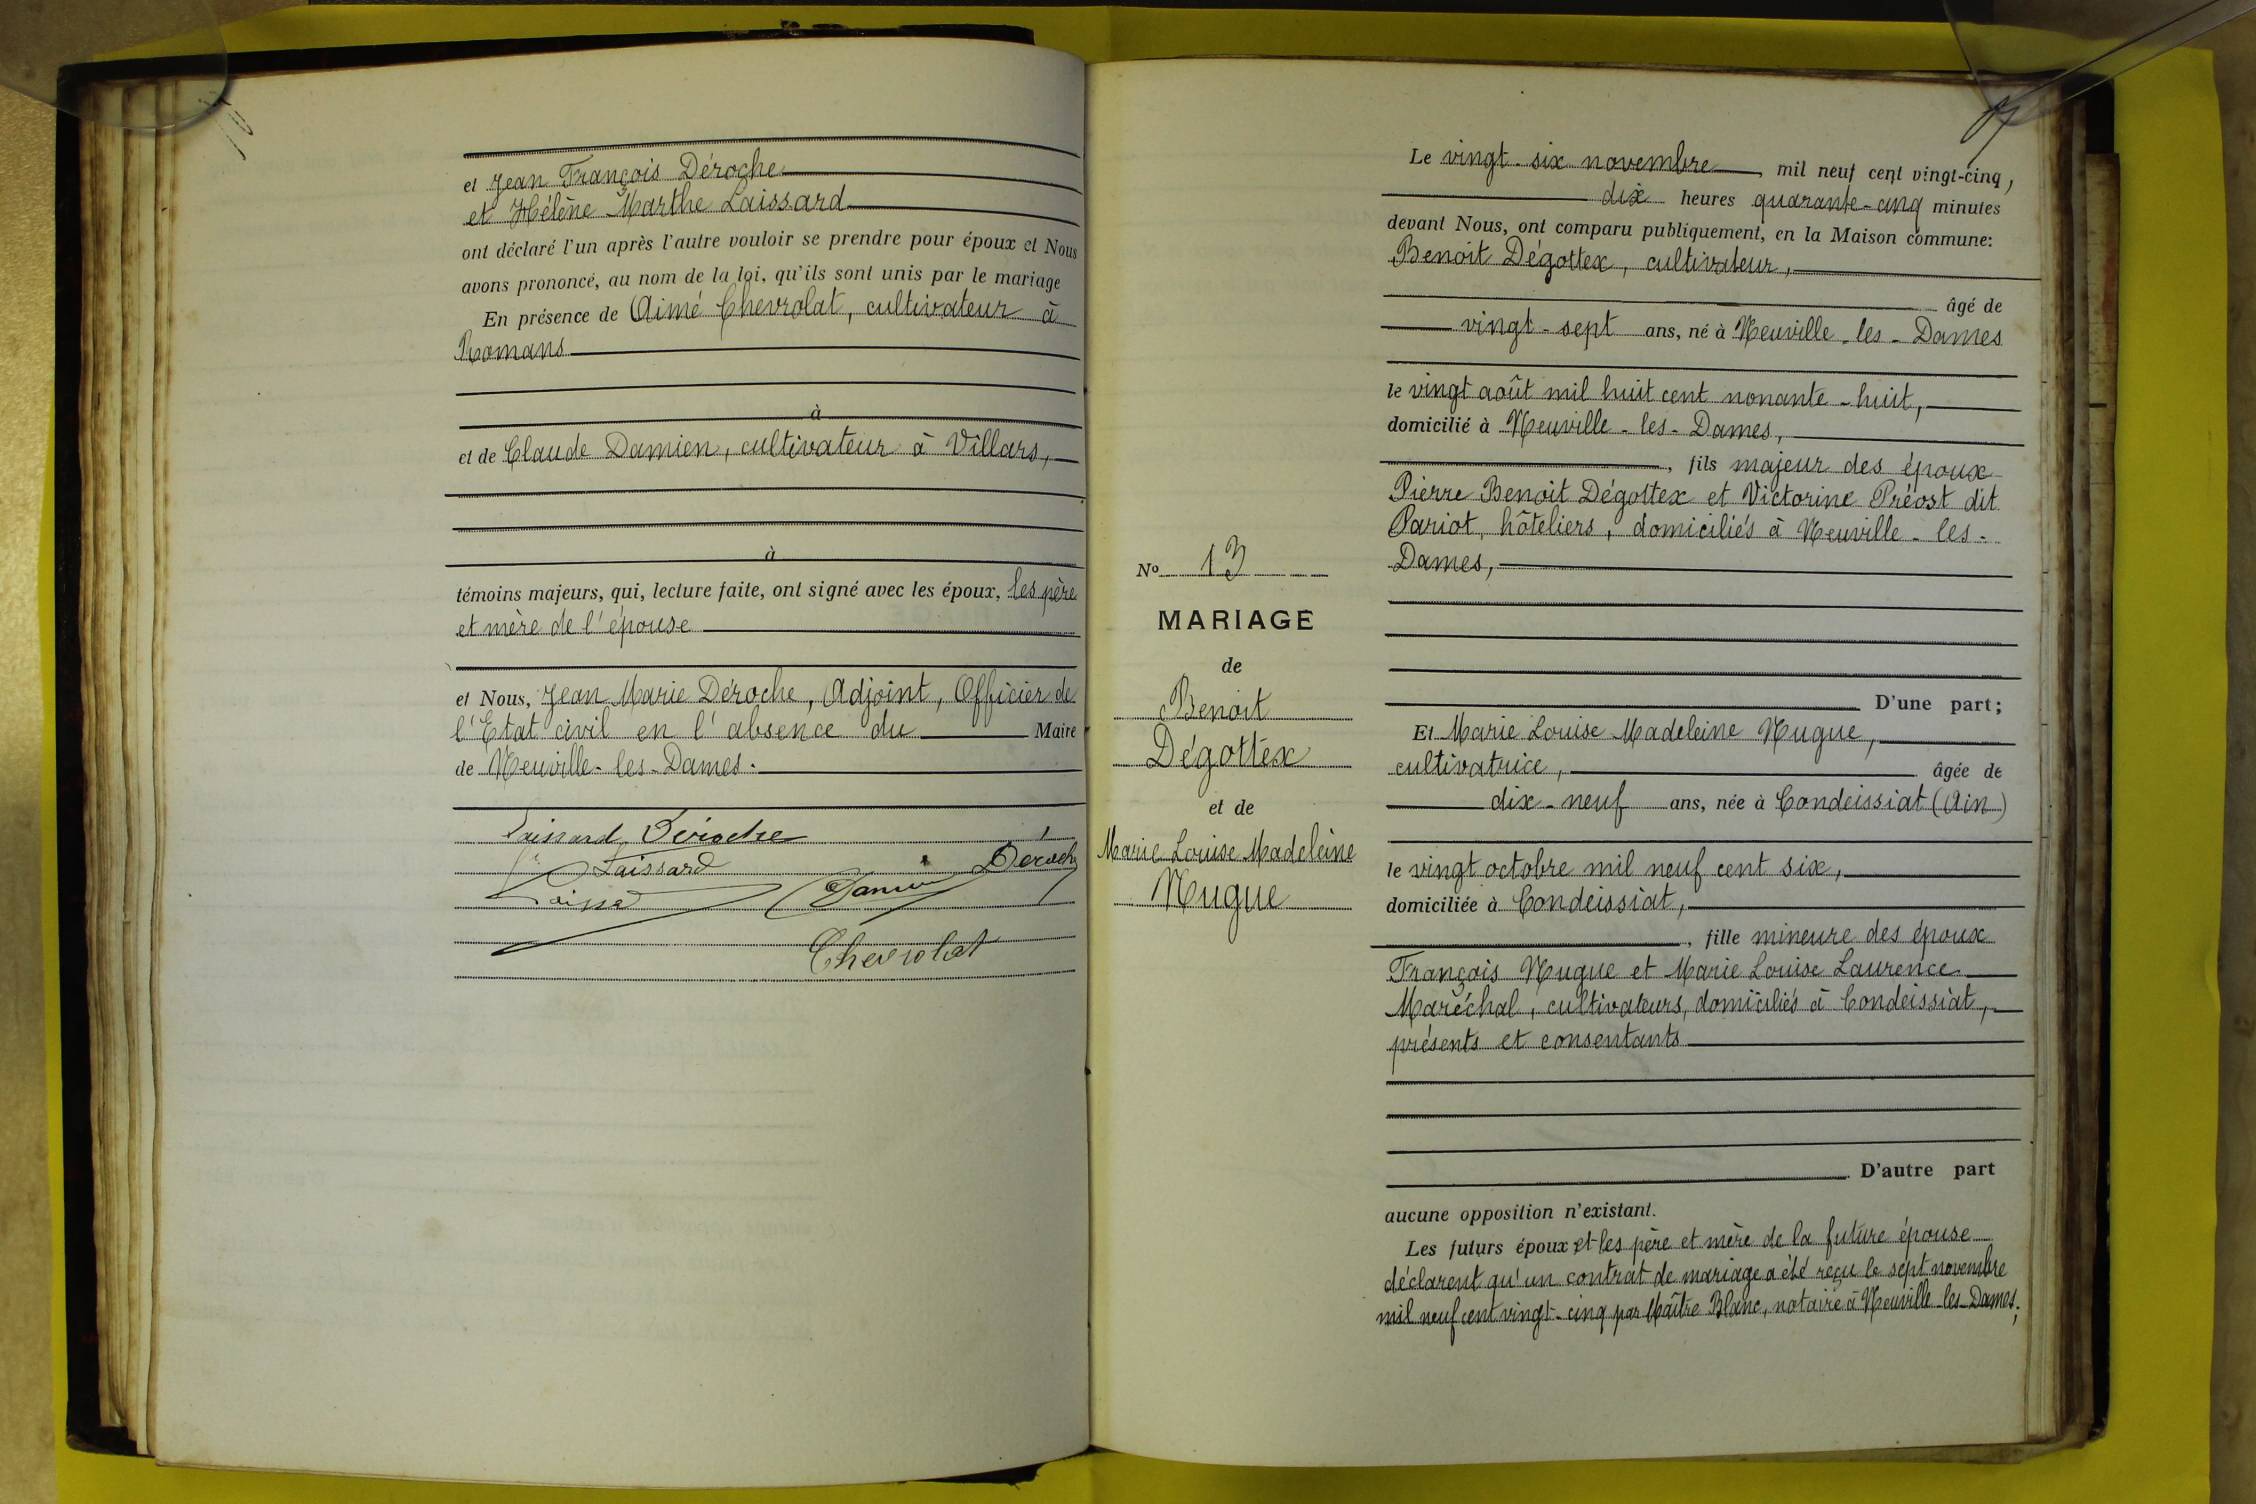 et Jean François Déroche
et Hélène Marthe Laissard
ont déclaré l'un après l'autre vouloir se prendre pour époux et Nous
avons prononcé, au nom de la loi, qu'ils sont unis par le mariage
En présence de Aimé Chevrolat, cultivateur à
Romans
à
et de Claude Damien, cultivateur à Villars,
à
témoins majeurs, qui, lecture faite, ont signé avec les époux, les père
et mère de l'épouse
et Nous, Jean Marie Déroche, Adjoint, Officier de
l'Etat civil en l'absence du Maire
de Neuville-les-Dames.
Laissard Déroche
Laissard Déroche
Damien
Chevrolat
No 13
MARIAGE
de
Benoit
Dégottex
et de
Marie Louise Madeleine
Nugue
Le vingt-six novembre, mil neuf cent vingt-cinq,
dix heures quarante-cinq minutes
devant Nous, ont comparu publiquement, en la Maison commune:
Benoit Dégottex, cultivateur,
âgé de
vingt-sept ans, né à Neuville-les-Dames
le vingt août mil huit cent nonante-huit,
domicilié à Neuville-les-Dames,
, fils majeur des époux
Pierre Benoit Dégottex et Victorine Préost dit
Pariot, hôteliers, domiciliés à Neuville-les-
Dames,
D'une part;
Et Marie Louise Madeleine Nugue,
cultivatrice, âgée de
dix-neuf ans, née à Condeissiat (Ain)
le vingt octobre mil neuf cent six,
domiciliée à Condeissiat,
, fille mineure des époux
François Nugue et Marie Louise Laurence
Maréchal, cultivateurs, domiciliés à Condeissiat,
présents et consentants
D'autre part
aucune opposition n'existant.
Les futurs époux et les père et mère de la future épouse
déclarent qu'un contrat de mariage a été reçu le sept novembre
mil neuf cent vingt-cinq par Maître Blanc, notaire à Neuville-les-Dames;